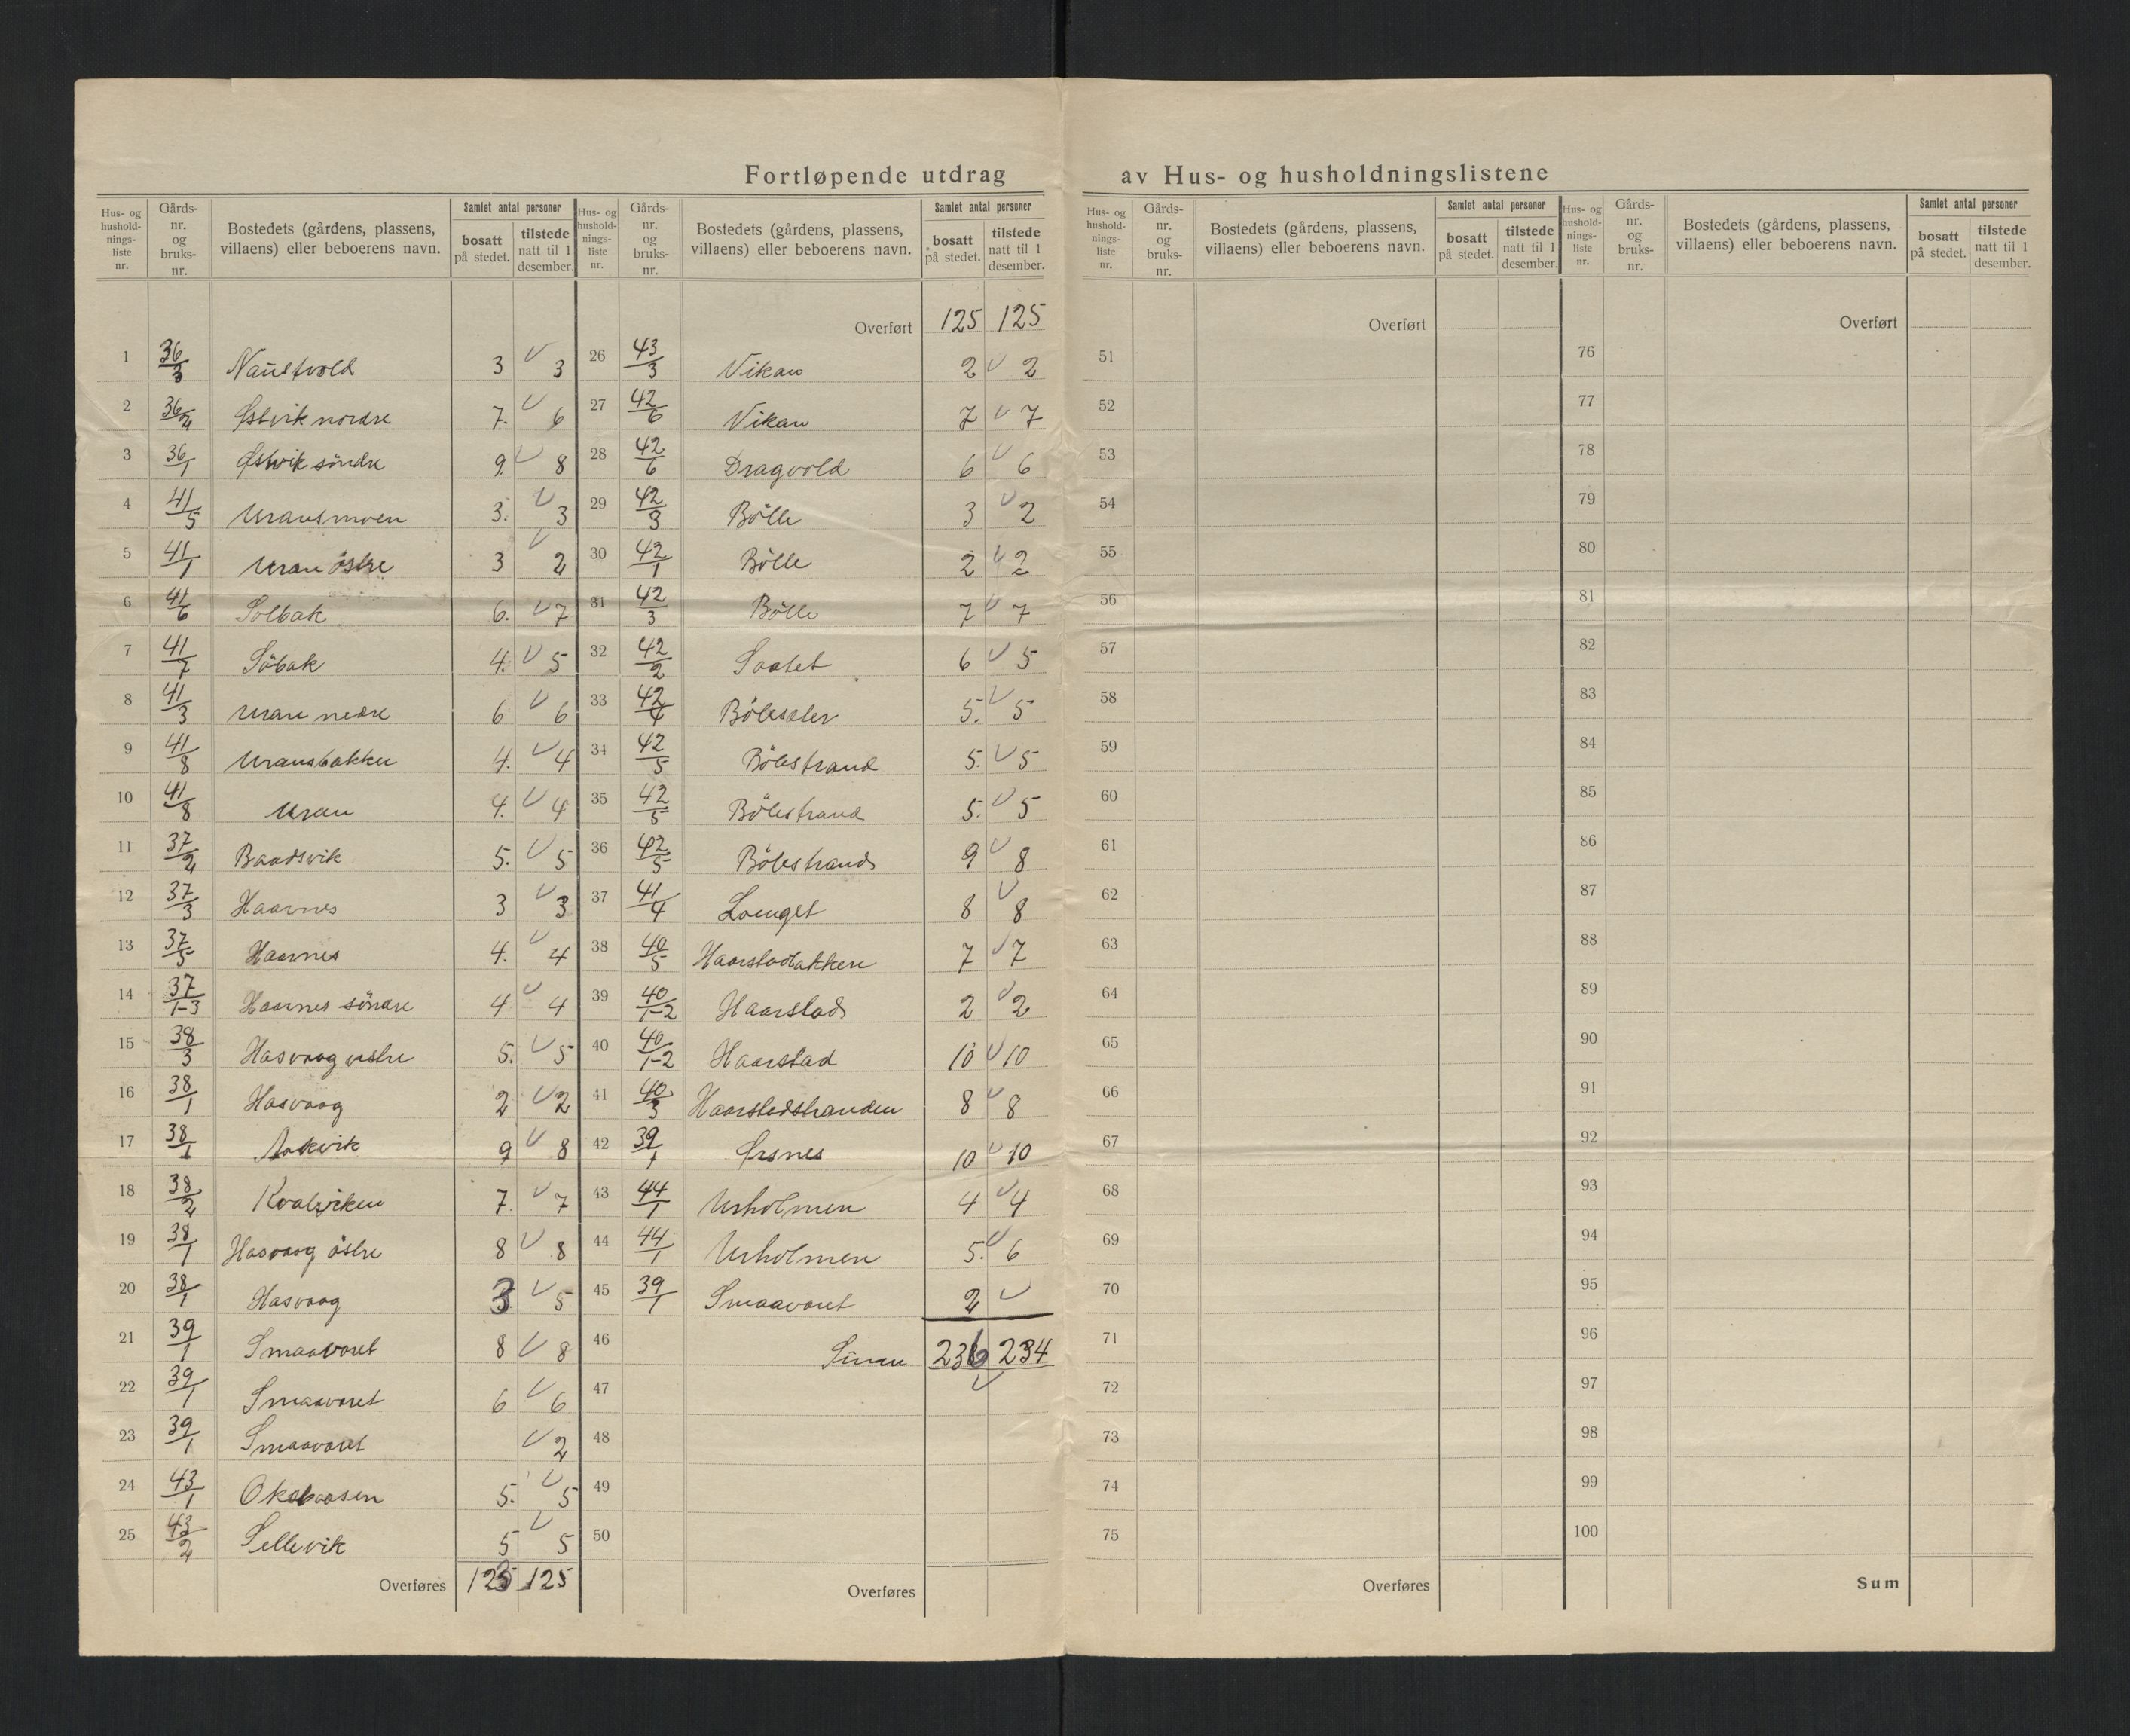 Fortløpende utdrag av Hus- og husholdningslistene
Hus- og hushold-nings-liste nr. | Gårds-nr. og bruks-nr. | Bostedets (gårdens, plassens, villaens) eller beboerens navn. | Samlet antal personer | bosatt på stedet. | tilstede natt til 1 desember.
1 36/3 Naustvold 3 3
2 36/2 Østvik nordre 7. 6
3 36/1 Østvik söndre 9 8
4 41/5 Uransmoen 3. 3
5 41/1 Uran östre 3 2
6 41/6 Solbak 6. 7
7 41/7 Söbak 4. 5
8 41/3 Uran nedre 6 6
9 41/8 Uransbakken 4. 4
10 41/8 Uran 4. 4
11 37/2 Baadsvik 5. 5
12 37/3 Haarnes 3 3
13 37/5 Haarnes 4. 4
14 37/1-3 Haarnes söndre 4 4
15 38/3 Hasvaag vestre 5. 5
16 38/1 Hasvaag 2 2
17 38/1 Aakvik 9 8
18 38/2 Kvalviken 7. 7
19 38/1 Hasvaag östre 8 8
20 38/1 Hasvaag 3 5
21 39/1 Smaaværet 8 8
22 39/1 Smaaværet 6 6
23 39/1 Smaaværet 2
24 43/1 Oksbaasen 5. 5
25 43/2 Sellevik 5 5
Overføres 123 125
Hus- og hushold-nings-liste nr. | Gårds-nr. og bruks-nr. | Bostedets (gårdens, plassens, villaens) eller beboerens navn. | Samlet antal personer | bosatt på stedet. | tilstede natt til 1 desember.
Overført 125 125
26 43/3 Vikan 2 2
27 42/6 Vikan 7 7
28 42/6 Dragvold 6 6
29 42/3 Bölle 3 2
30 42/1 Bölle 2 2
31 42/3 Bölle 7 7
32 42/2 6 5
33 42/4 5. 5
34 42/5 Bölestrand 5. 5
35 42/5 Bölestrand 5. 5
36 42/5 Bölestrand 9 8
37 41/4 Loenget 8 8
38 40/5 Haarstadbakken 7 7
39 40/1-2 Haarstad 2 2
40 40/1-2 Haarstad 10 10
41 40/3 Haarstadstranden 8 8
42 39/1 Ørsnes 10 10
43 44/1 Urholmen 4 4
44 44/1 Urholmen 5. 6
45 39/1 Smaaværet 2
46 Sum 236 234
47
48
49
50
Overføres
Hus- og hushold-nings-liste nr. | Gårds-nr. og bruks-nr. | Bostedets (gårdens, plassens, villaens) eller beboerens navn. | Samlet antal personer | bosatt på stedet. | tilstede natt til 1 desember.
Overført
51
52
53
54
55
56
57
58
59
60
61
62
63
64
65
66
67
68
69
70
71
72
73
74
75
Overføres
Hus- og hushold-nings-liste nr. | Gårds-nr. og bruks-nr. | Bostedets (gårdens, plassens, villaens) eller beboerens navn. | Samlet antal personer | bosatt på stedet. | tilstede natt til 1 desember.
Overført
76
77
78
79
80
81
82
83
84
85
86
87
88
89
90
91
92
93
94
95
96
97
98
99
100
Sum